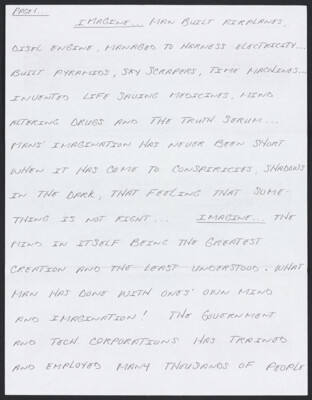 PAGE 1...
IMAGINE... MAN BUILT AIRPLANES,
DISEL ENGINE, MANAGED TO HARNESS ELECTRICITY...
BUILT PYRAMIDS, SKY SCRAPERS, TIME MACHINES...
INVENTED LIFE SAVING MEDICINES, MIND
ALTERING DRUGS AND THE TRUTH SERUM...
MANS' IMAGINATION HAS NEVER BEEN SHORT
WHEN IT HAS COME TO CONSPIRICIES, SHADOWS
IN THE DARK, THAT FEELING THAT SOME-
THING IS NOT RIGHT... IMAGINE... THE
MIND IN ITSELF BEING THE GREATEST
CREATION AND THE LEAST UNDERSTOOD. WHAT
MAN HAS DONE WITH ONES' OWN MIND
AND IMAGINATION! THE GOVERNMENT
AND TECH CORPORATIONS HAS TRAINED
AND EMPLOYED MANY THOUSANDS OF PEOPLE